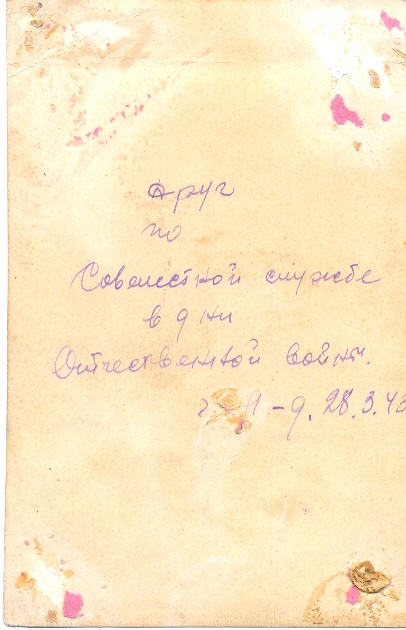 Друг
по
Совместной службе
в дни
Отечественной войны.
28.3.43